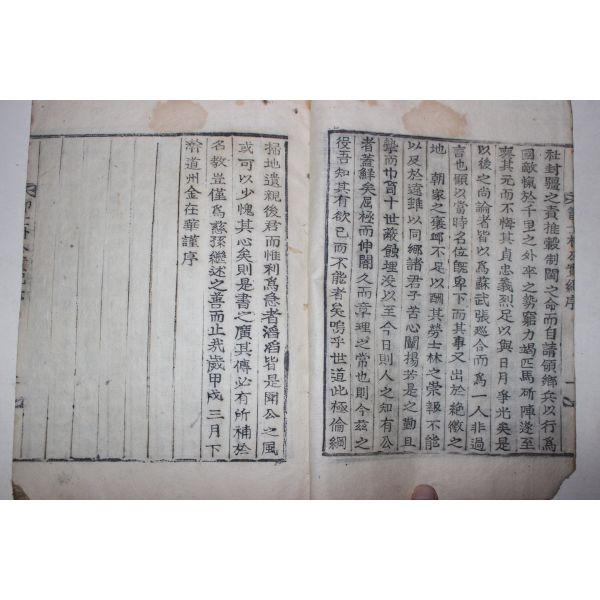 社封疆之責推轂制閫之命而自請領鄉兵以行為
國敵愾於千里之外卒之勢窮力竭匹馬斫陣遂至
喪其元而不悔其貞忠義烈足以與日月爭光矣是
以後之尚論者皆以為蘇武張巡合而為一人非過
言也顧以當時名位旣卑下而其事又出於絶徼之
地 朝家之褒卹不足以酬其勞士林之崇報不能
以足於遠雖以同鄉諸君子苦心闡揚若是之勤且
摯而百十世敵蝕埋没以至今日則人之知有公
者蓋鮮矣屈極而伸闇久而章理之常也則今玆之
役吾知其有欲已而不能者矣嗚乎世道此極倫綱
掃地遺親後君而惟利為急者滔滔皆是聞公之風
或可以少愧其心矣則是書之廣其傳必有所補於
名教豈僅為蘇孫繼述之善而止哉歲甲戌三月下
澣道州金在華謹序